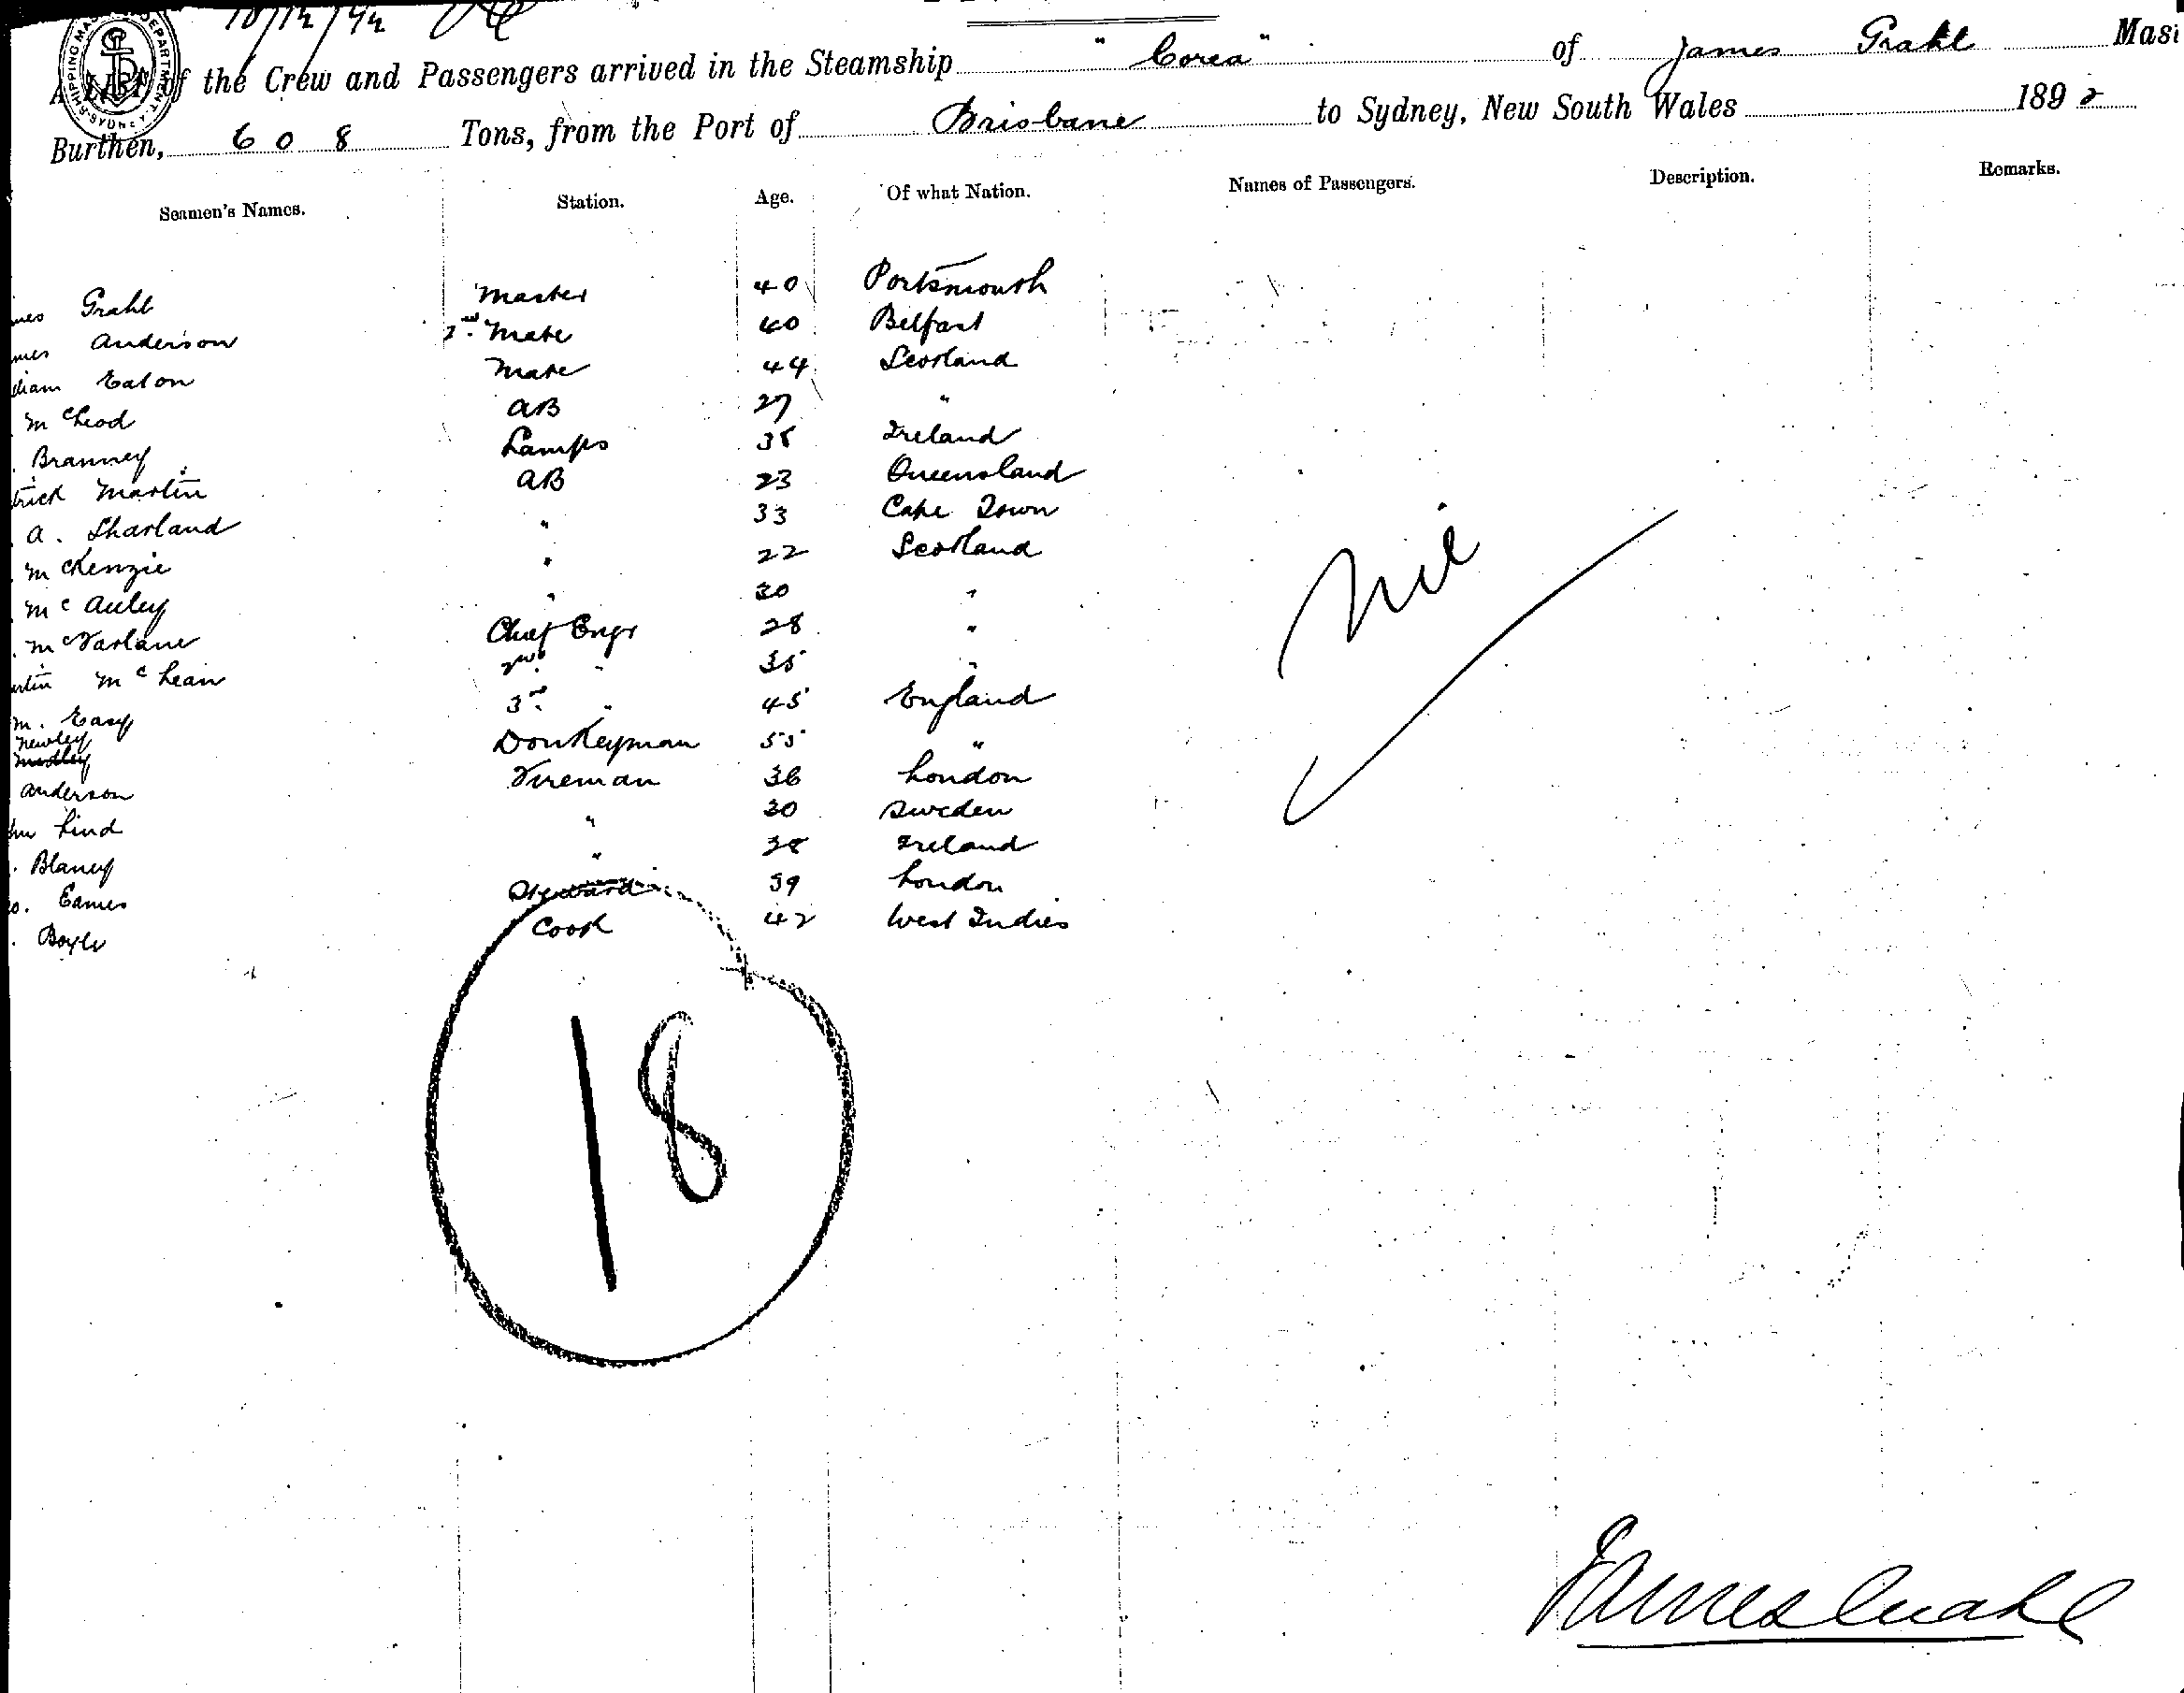 10/12/92
SHIPPING MASTER'S DEPARTMENT SYDNEY
A LIST of the Crew and Passengers arrived in the Steamship "Corea" of James Grahl Mas
Burthen, 608 Tons, from the Port of Brisbane to Sydney, New South Wales 1892
Seamen's Names. Station. Age. Of what Nation. Names of Passengers. Description. Remarks.
mes Grahl Master 40 Portsmouth
mes Anderson 2nd Mate 40 Belfast
lliam Eaton Mate 44 Scotland
McLeod AB 27 "
Branney Lamps 38 Ireland
trick Martin AB 23 Queensland
A. Sharland " 33 Cape Town
McKenzie " 22 Scotland
McAuley " 30 "
McFarlane Chief Engr 28 "
artin McLean 2nd " 35 "
m. Easy 3rd " 45 England
Newley Donkeyman 55 "
Medley
Anderson Fireman 36 London
hn Lind " 30 Sweden
Blaney " 38 Ireland
o. Eames Steward 39 London
Boyle Cook 42 West Indies
Nil
18
James Grahl